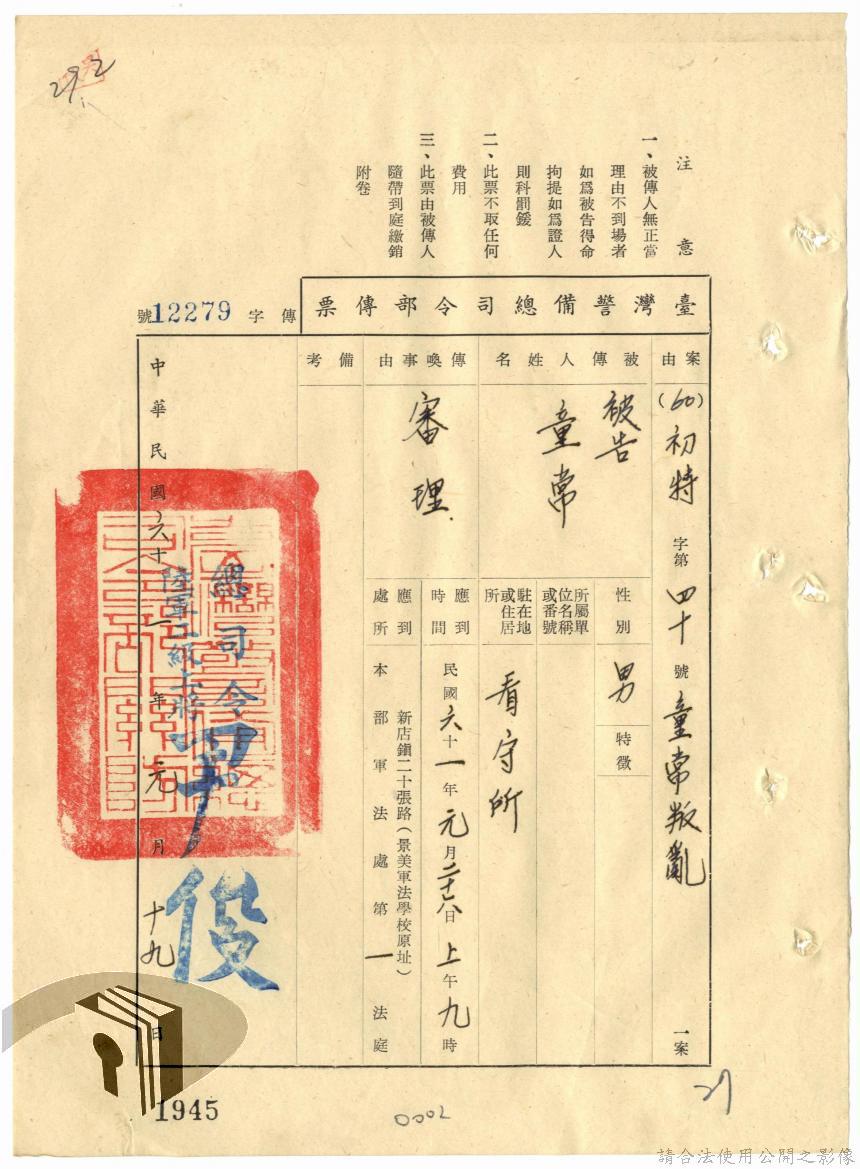 292
注意
一、被傳人無正當
理由不到場者
如爲被告得命
拘提如爲證人
則科罰鍰
二、此票不取任何
費用
三、此票由被傳人
隨帶到庭繳銷
附卷
臺灣警備總司令部傳票
傳字
12279號
案由
(60)初特字第四十號童常叛亂一案
被傳人姓名
被告
童常
性別
男
特徵
所屬單
位名稱
或番號
駐在地
或住居
所
看守所
傳喚事由
審理
應到
時間
民國六十一年元月二十八日上午九時
應到
處所
新店鎮二十張路(景美軍法學校原址)
本部軍法處第一法庭
備考
總司令
陸軍二級上將
俊
中華民國六十一年元月十九日
1945
0002
27
請合法使用公開之影像